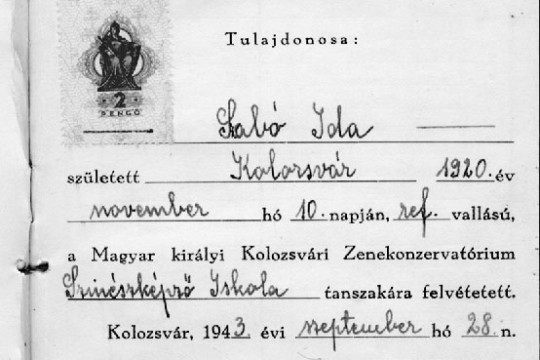 2
PENGŐ
Tulajdonosa:
Szabó Ida
született Kolozsvár 1920. év
november hó 10. napján, ref. vallású,
a Magyar királyi Kolozsvári Zenekonzervatórium
Szinészképző Iskola tanszakára felvétetett.
Kolozsvár, 1943. évi szeptember hó 28. n.